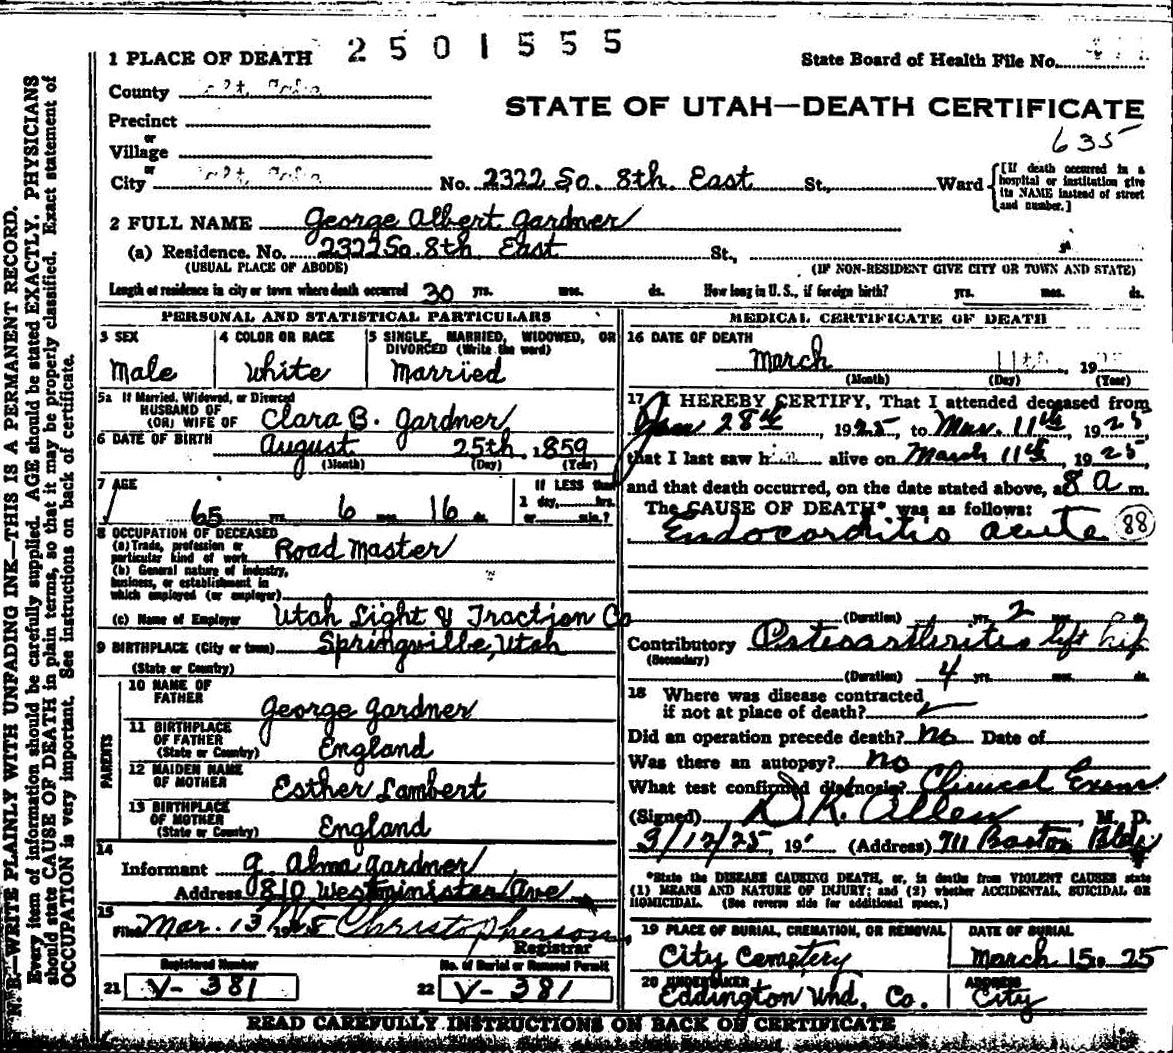 2501555
1 PLACE OF DEATH
State Board of Health File No.
County
STATE OF UTAH—DEATH CERTIFICATE
Precinct
or
635
Village
or
City
No. 2322 So. 8th. East St., Ward
[If death occurred in a hospital or institution give its NAME instead of street and number.]
2 FULL NAME George Albert Gardner
(a) Residence. No. 2322 So. 8th. East St.,
(USUAL PLACE OF ABODE) (IF NON-RESIDENT GIVE CITY OR TOWN AND STATE)
Length of residence in city or town where death occurred 30 yrs. mos. ds. How long in U. S., if foreign birth? yrs. mos. ds.
PERSONAL AND STATISTICAL PARTICULARS
3 SEX
Male
4 COLOR OR RACE
White
5 SINGLE, MARRIED, WIDOWED, OR
DIVORCED (Write the word)
Married
5a If Married, Widowed, or Divorced
HUSBAND OF
(OR) WIFE OF Clara B. Gardner
6 DATE OF BIRTH August 25th. 1859
(Month) (Day) (Year)
7 AGE
65 yrs. 6 mos. 16 ds.
If LESS than
1 day, hrs.
or min.?
8 OCCUPATION OF DECEASED
(a) Trade, profession or
particular kind of work Road Master
(b) General nature of industry,
business, or establishment in
which employed (or employer)
(c) Name of Employer Utah Light & Traction Co
9 BIRTHPLACE (City or town) Springville, Utah
(State or Country)
PARENTS
10 NAME OF
FATHER George Gardner
11 BIRTHPLACE
OF FATHER England
(State or Country)
12 MAIDEN NAME
OF MOTHER Esther Lambert
13 BIRTHPLACE
OF MOTHER England
(State or Country)
14
Informant G. Alma Gardner
Address 810 Westminister Ave
15
Filed Mar. 13 1925 Christopherson
Registrar
Registered Number No. of Burial or Removal Permit
21 V-381 22 V-381
MEDICAL CERTIFICATE OF DEATH
16 DATE OF DEATH
March 11th 19
(Month) (Day) (Year)
17 I HEREBY CERTIFY, That I attended deceased from
Jan 28th, 1925, to Mar. 11th, 1925
that I last saw h alive on March 11th 1925,
and that death occurred, on the date stated above, at 8 a m.
The CAUSE OF DEATH* was as follows:
Endocarditis acute 88
(Duration) yrs. 2 mos. ds.
Contributory Osteoarthritis left hip
(Secondary)
(Duration) 4 yrs. mos. ds.
18 Where was disease contracted
if not at place of death?
Did an operation precede death? no Date of
Was there an autopsy? no
What test confirmed diagnosis? Clinical Exam
(Signed) D.K. Allen M. D.
3/12/25, 19 (Address) 711 Boston Bldg
*State the DISEASE CAUSING DEATH, or, in deaths from VIOLENT CAUSES state
(1) MEANS AND NATURE OF INJURY; and (2) whether ACCIDENTAL, SUICIDAL OR
HOMICIDAL. (See reverse side for additional space.)
19 PLACE OF BURIAL, CREMATION, OR REMOVAL
City Cemetery
DATE OF BURIAL
March 15 19 25
20 UNDERTAKER
Eddington Und, Co.
ADDRESS
City
READ CAREFULLY INSTRUCTIONS ON BACK OF CERTIFICATE
N. B.—WRITE PLAINLY WITH UNFADING INK—THIS IS A PERMANENT RECORD.
Every item of information should be carefully supplied. AGE should be stated EXACTLY. PHYSICIANS
should state CAUSE OF DEATH in plain terms, so that it may be properly classified. Exact statement of
OCCUPATION is very important. See instructions on back of certificate.